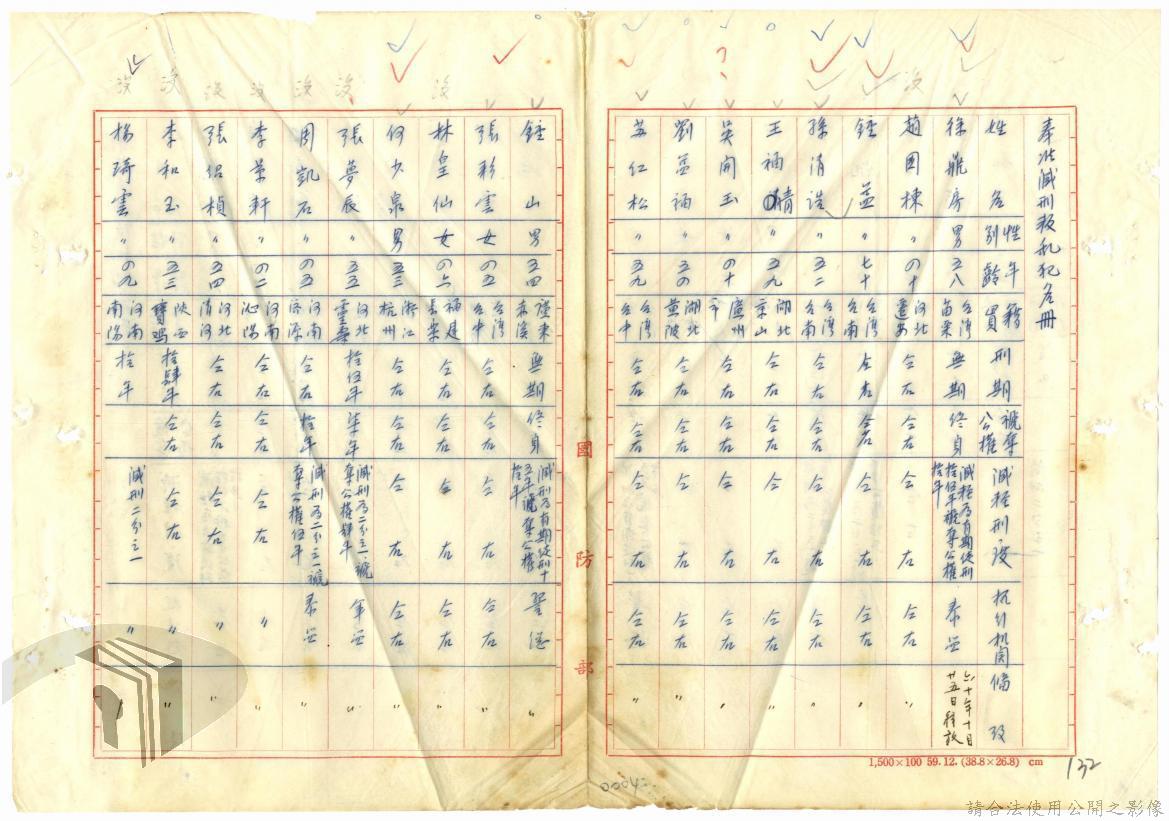 奉准減刑叛亂犯名冊
姓名 性別 年齡 籍貫 刑期 褫奪公權 減輕刑度 執行机関 備攷
徐鼎房 男 五八 台湾苗栗 無期 終身 減輕為有期徒刑拾伍年褫奪公權拾年 泰监 六十年十月廿五日釋放
趙国棟 〃 四十 河北遷安 仝右 仝右 仝右 仝右
鍾益 〃 七十 台湾台南 仝右 仝右 仝右 仝右 〃
孫清浩 〃 五二 台湾台南 仝右 仝右 仝右 仝右 〃
王福晴 〃 五九 湖北京山 仝右 仝右 仝右 仝右 〃
吳開玉 〃 四十 廣州市 仝右 仝右 仝右 仝右 〃
劉益福 〃 五四 湖北黄陂 仝右 仝右 仝右 仝右 〃
苏仁松 〃 五九 台湾台中 仝右 仝右 仝右 仝右 〃
鍾山 男 五四 赤溪 無期 終身 減刑為有期徒刑十五年褫奪公權拾年 〃
張彩雲 女 四五 台湾台中 仝右 仝右 仝右 仝右 〃
林皇仙 女 四六 福建長樂 仝右 仝右 仝右 仝右 〃
何少泉 男 五三 浙江杭州 仝右 仝右 仝右 仝右 〃
張夢辰 〃 五五 河北靈壽 拾伍年 柒年 減刑為二分之一褫奪公權肆年 军监 〃
周凱石 〃 四五 河南济源 仝右 拾年 減刑為二分之一褫奪公權伍年 泰监 〃
李景軒 〃 四二 河南沁陽 仝右 仝右 仝右 〃 〃
張侶楨 〃 五四 河北清河 仝右 仝右 仝右 〃 〃
李和玉 〃 五三 陝西寶鸡 拾肆年 仝右 仝右 〃 〃
楊琦雲 〃 四九 河南南陽 拾年 減刑二分之一 〃 〃
國防部
1,500×100 59.12.(38.8×26.8) cm
132
請合法使用公開之影像